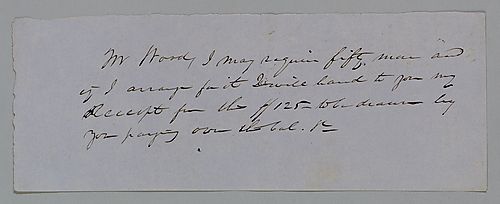 Mr Wood, I may require fifty more and
if I arrange for it I will hand to you my
Receipt for the $125 to be drawn by
you paying over the bal. &c